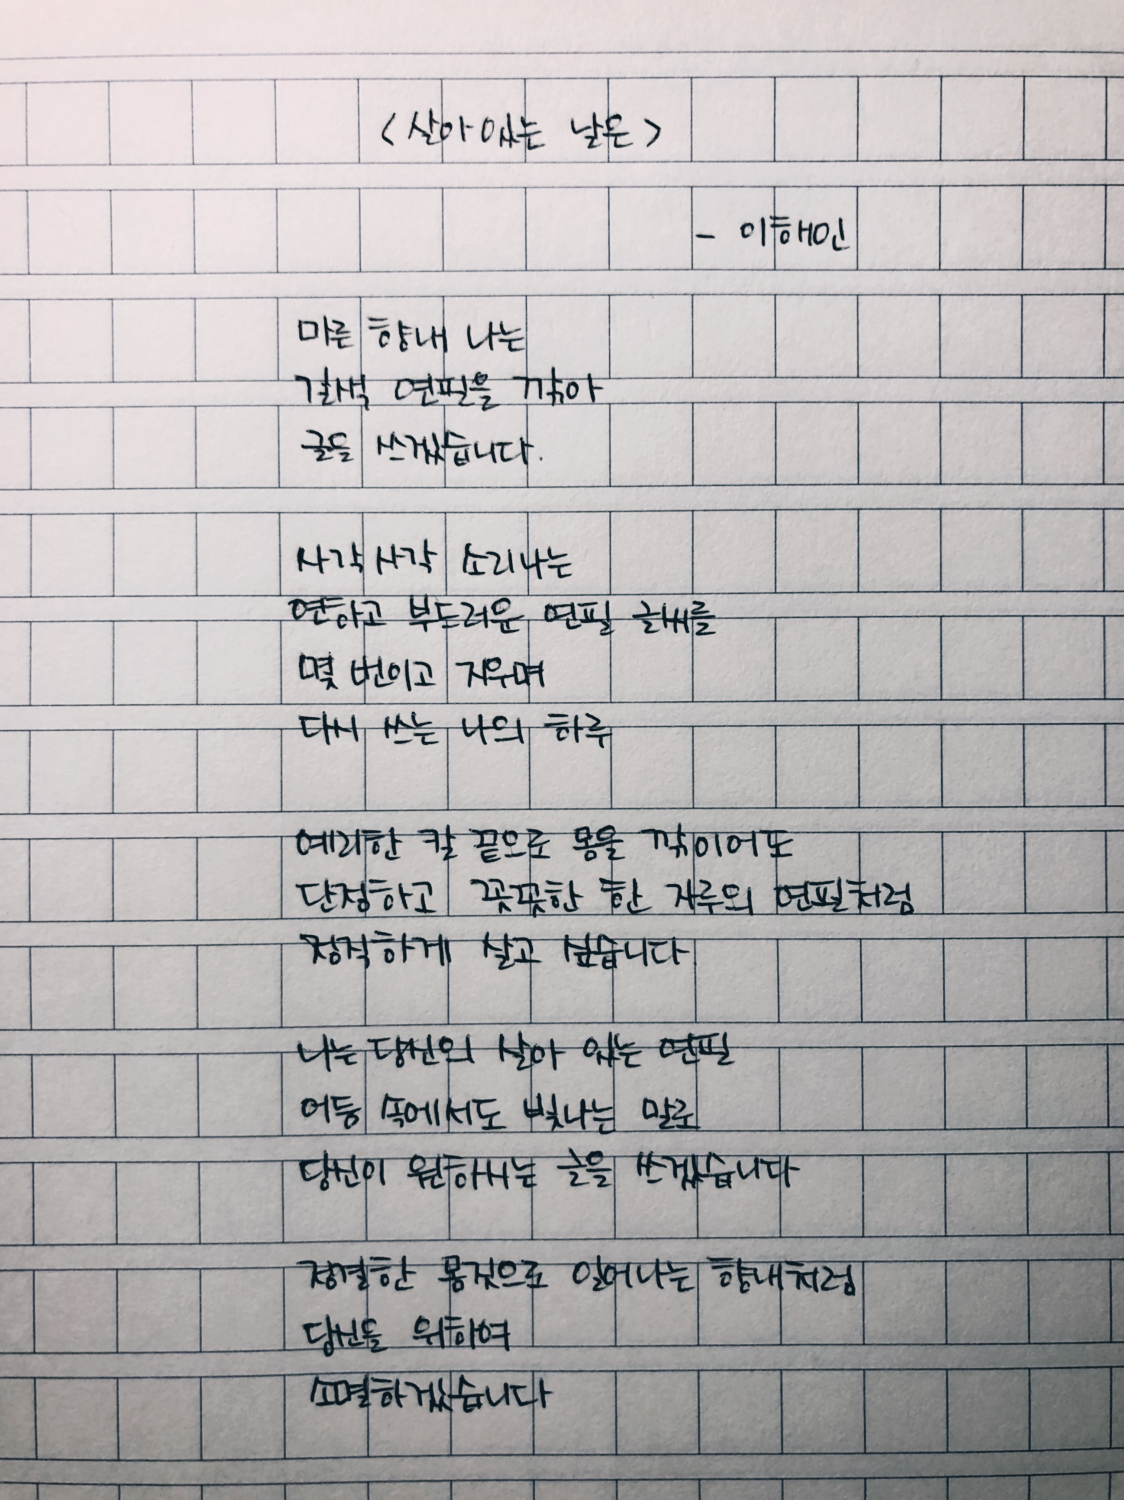 <살아있는 날은>
- 이해인
마른 향내 나는
갈색 연필을 깎아
글을 쓰겠습니다.
사각사각 소리나는
연하고 부드러운 연필 글씨를
몇 번이고 지우며
다시 쓰는 나의 하루
예리한 칼 끝으로 몸을 깎이어도
단정하고 꼿꼿한 한 자루의 연필처럼
정직하게 살고 싶습니다
나는 당신의 살아 있는 연필
어둠 속에서도 빛나는 말로
당신이 원하시는 글을 쓰겠습니다
정결한 몸짓으로 일어나는 향내처럼
당신을 위하여
소멸하겠습니다